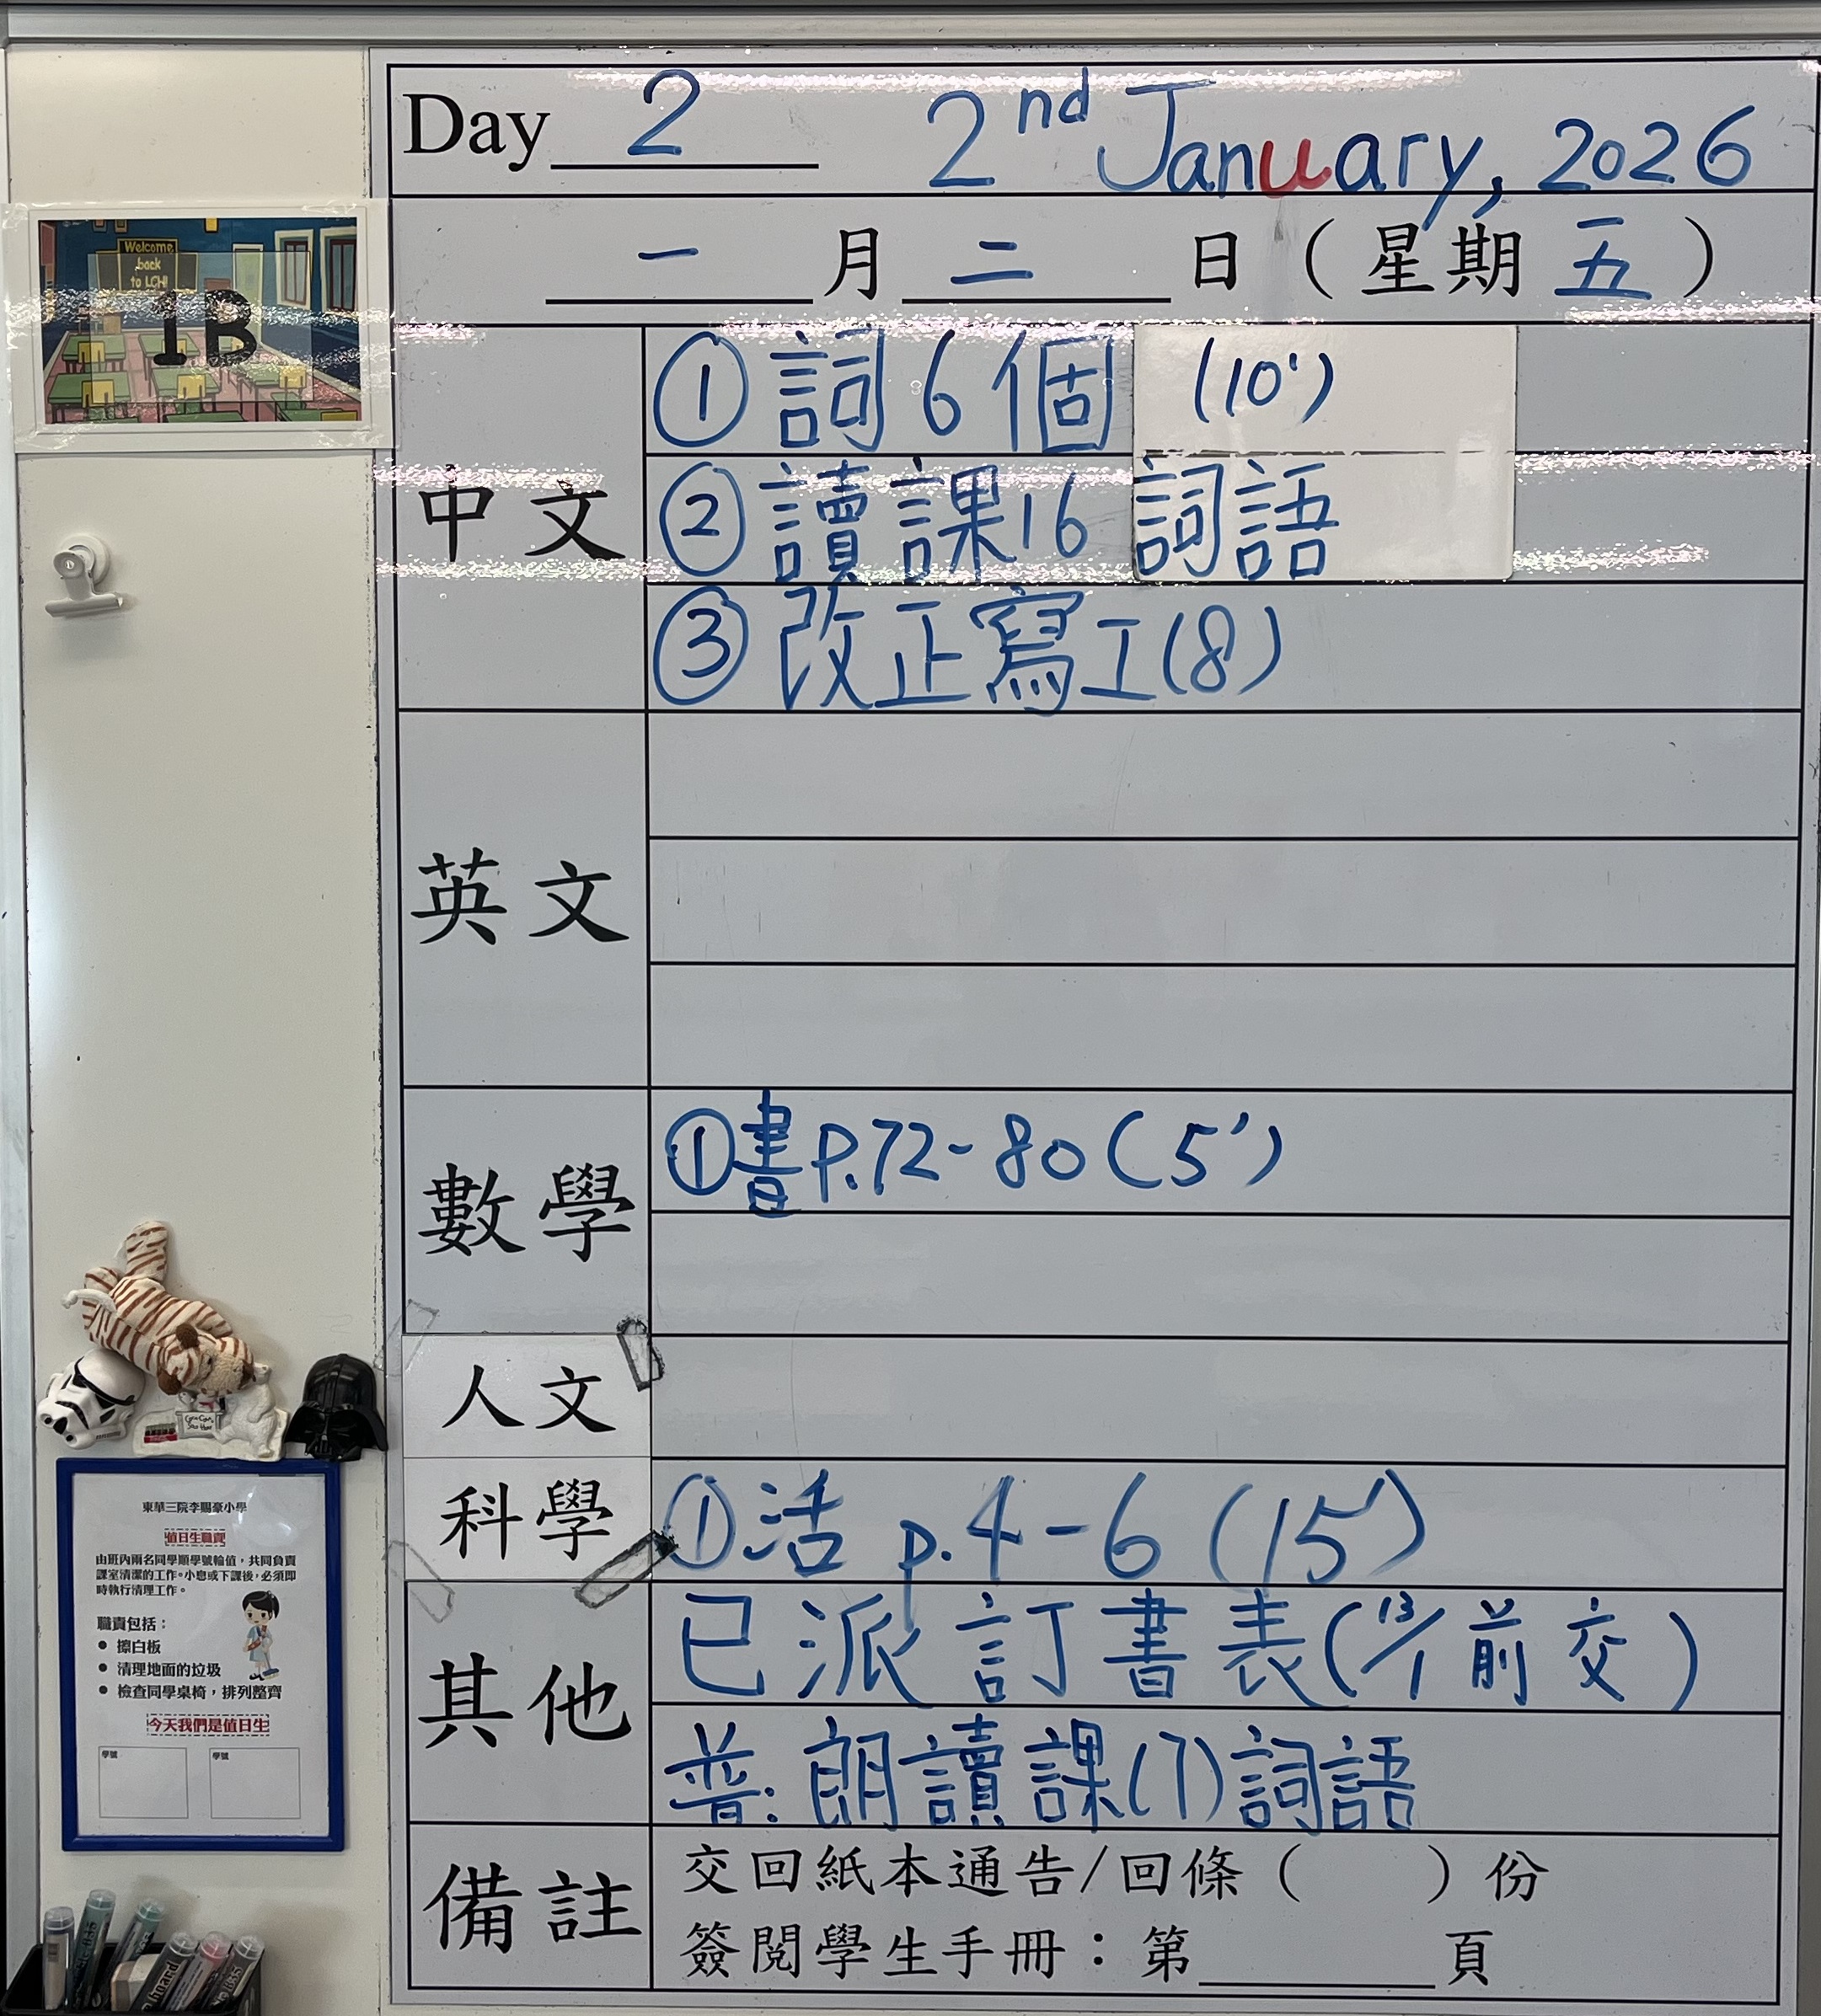 Day 2 2nd January, 2026
一月二日（星期五）
Welcome
back
to LCH!
1B
中文
①詞6個 (10')
②讀課16詞語
③改正寫工(8)
英文
數學
①書P.72-80(5')
人文
科學
①活 p.4-6 (15')
其他
已派訂書表(13/1前交)
普:朗讀課(7)詞語
備註
交回紙本通告/回條（ ）份
簽閱學生手冊：第 頁
東華三院李賜豪小學
值日生職責
由班內兩名同學順學號輪值，共同負責
課室清潔的工作。小息或下課後，必須即
時執行清理工作。
職責包括：
● 擦白板
● 清理地面的垃圾
● 檢查同學桌椅，排列整齊
今天我們是值日生
學號 學號